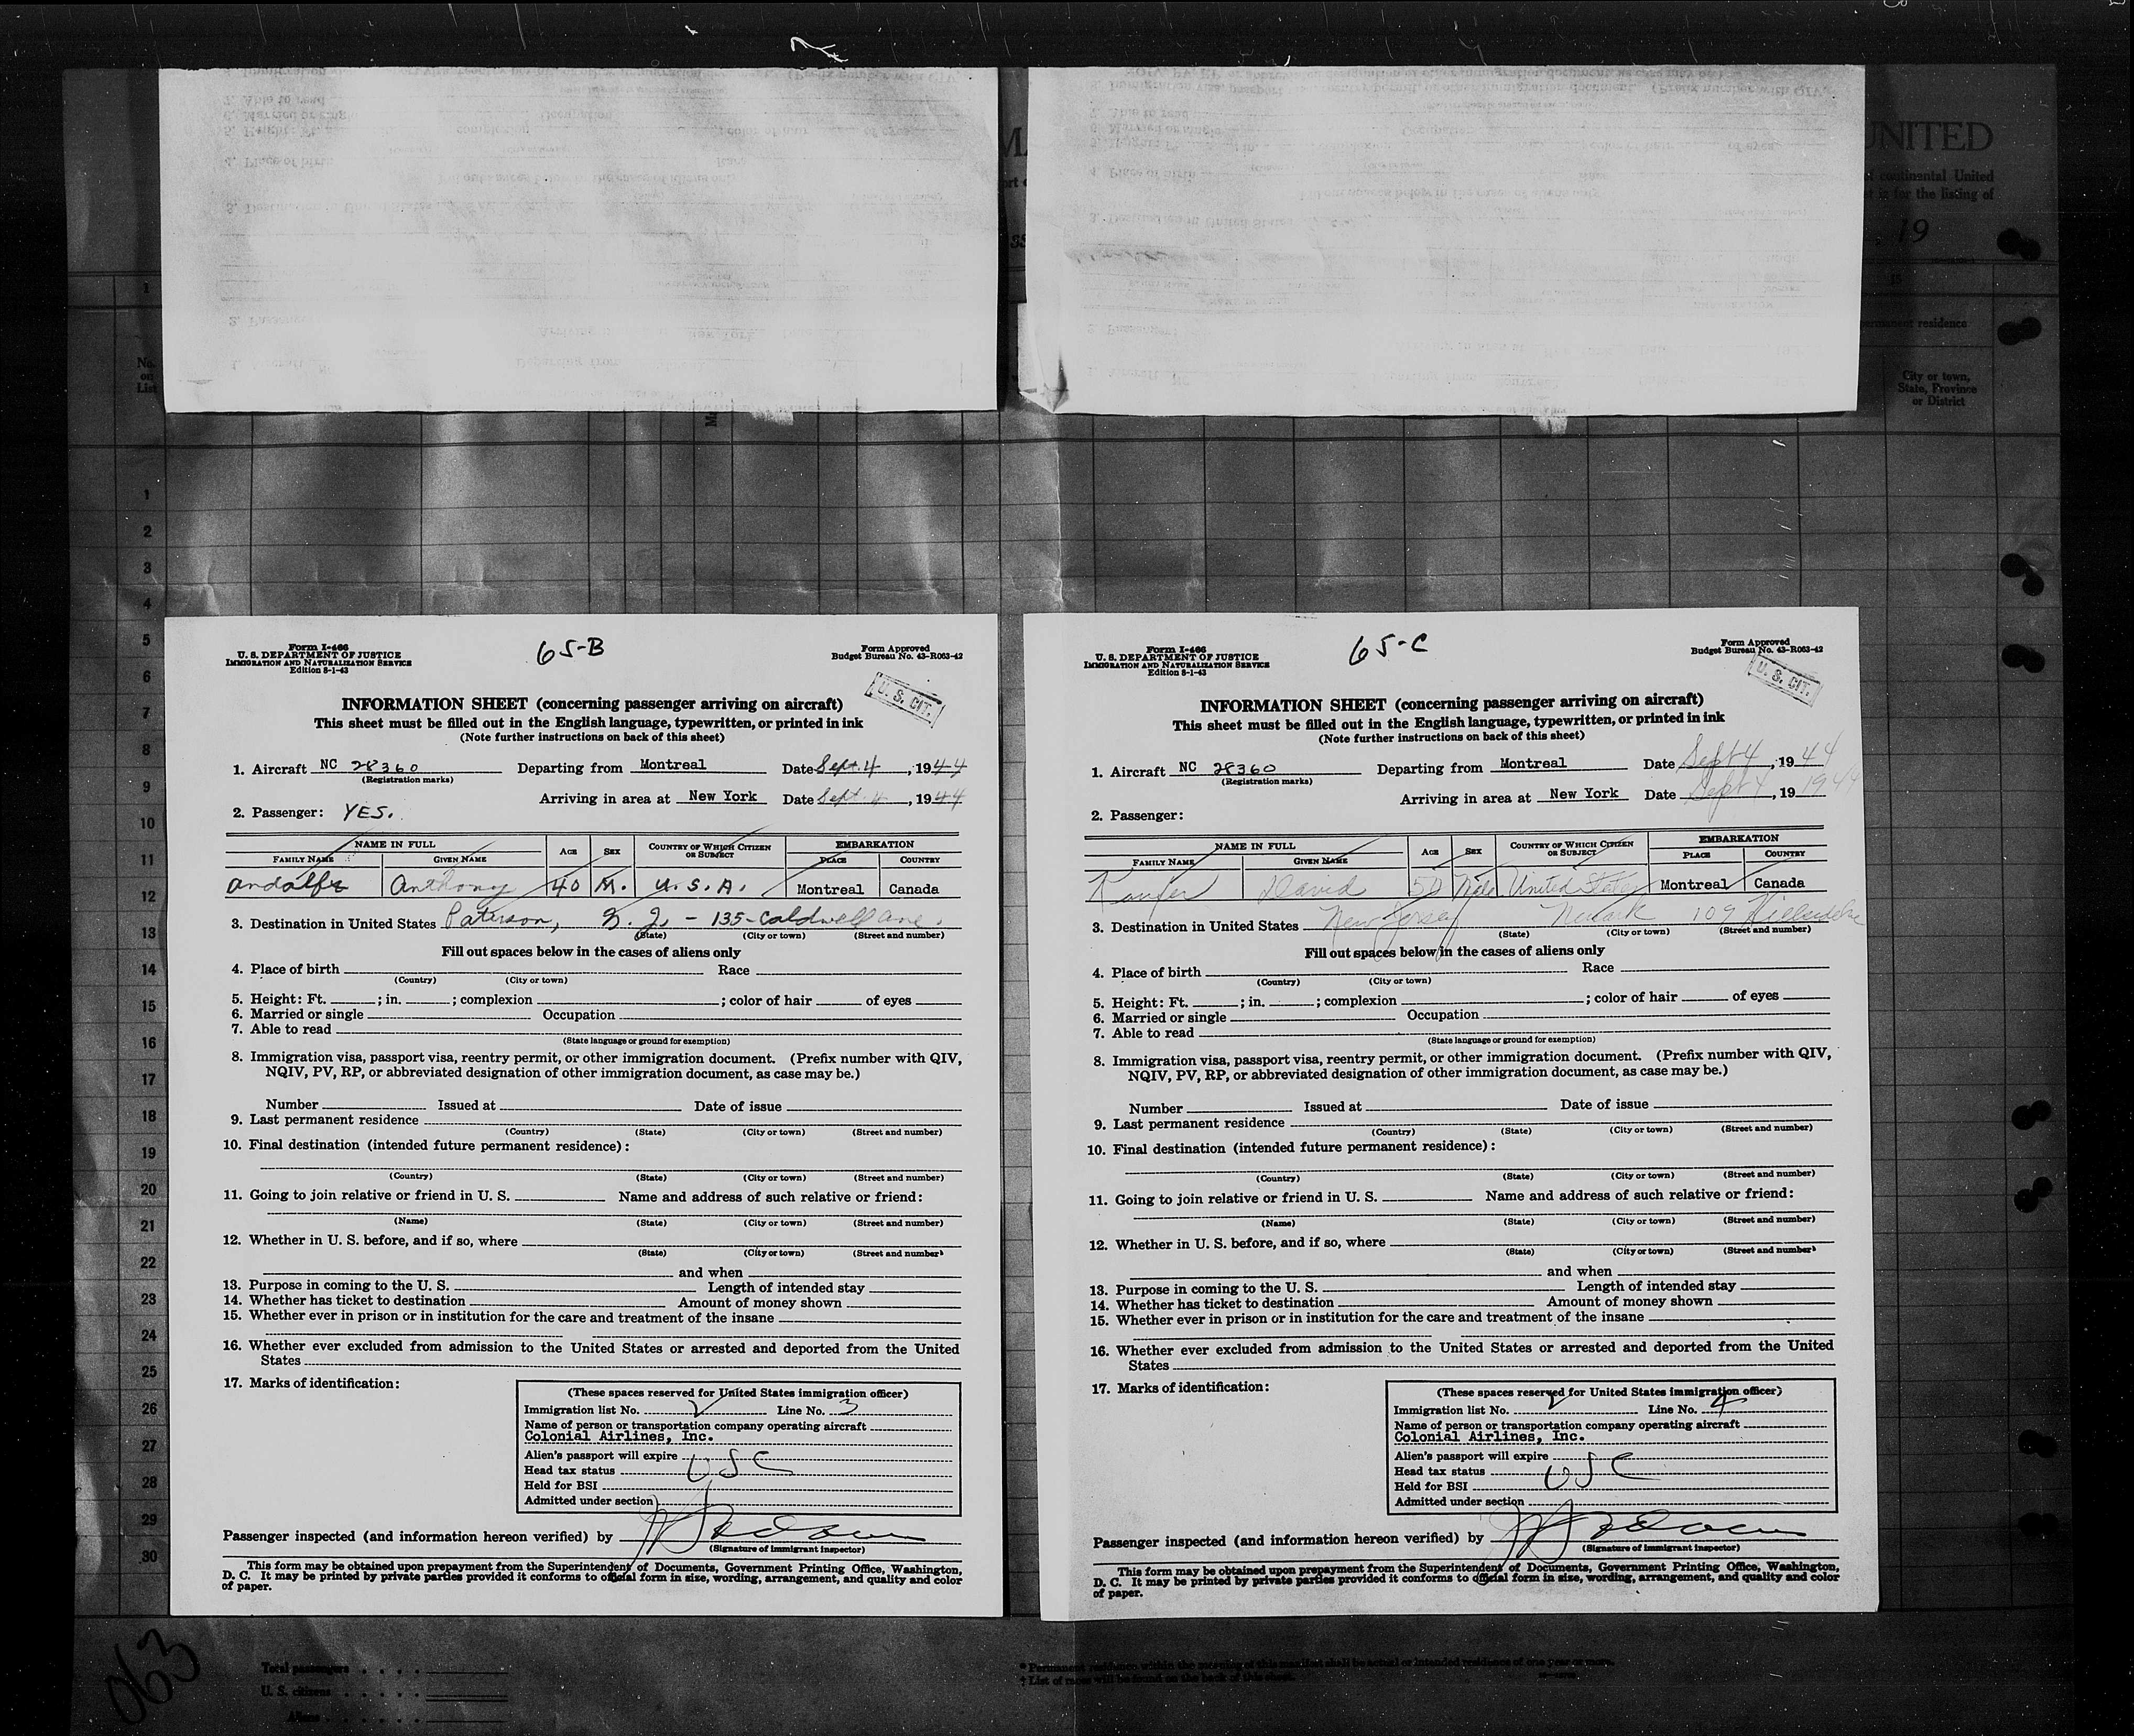 UNITED
continental United
is for the listing of
19
15
permanent residence
No. on List
City or town, State, Province or District
1
2
3
4
5
6
7
8
9
10
11
12
13
14
15
16
17
18
19
20
21
22
23
24
25
26
27
28
29
30
65-B
Form I-466
U. S. DEPARTMENT OF JUSTICE
IMMIGRATION AND NATURALIZATION SERVICE
Edition 8-1-43
Form Approved
Budget Bureau No. 43-R063-42
U. S. CIT.
INFORMATION SHEET (concerning passenger arriving on aircraft)
This sheet must be filled out in the English language, typewritten, or printed in ink
(Note further instructions on back of this sheet)
1. Aircraft NC 28360 Departing from Montreal Date Sept. 4, 1944
(Registration marks)
Arriving in area at New York Date Sept. 4, 1944
2. Passenger: YES.
NAME IN FULL AGE SEX COUNTRY OF WHICH CITIZEN OR SUBJECT EMBARKATION
FAMILY NAME GIVEN NAME PLACE COUNTRY
Anthony 40 M. U. S. A. Montreal Canada
3. Destination in United States Paterson, N. J. - 135 - Caldwell ave.
(State) (City or town) (Street and number)
Fill out spaces below in the cases of aliens only
4. Place of birth Race
(Country) (City or town)
5. Height: Ft. ; in. ; complexion ; color of hair of eyes
6. Married or single Occupation
7. Able to read
(State language or ground for exemption)
8. Immigration visa, passport visa, reentry permit, or other immigration document. (Prefix number with QIV,
NQIV, PV, RP, or abbreviated designation of other immigration document, as case may be.)
Number Issued at Date of issue
9. Last permanent residence
(Country) (State) (City or town) (Street and number)
10. Final destination (intended future permanent residence):
(Country) (State) (City or town) (Street and number)
11. Going to join relative or friend in U. S. Name and address of such relative or friend:
(Name) (State) (City or town) (Street and number)
12. Whether in U. S. before, and if so, where
(State) (City or town) (Street and number)
and when
13. Purpose in coming to the U. S. Length of intended stay
14. Whether has ticket to destination Amount of money shown
15. Whether ever in prison or in institution for the care and treatment of the insane
16. Whether ever excluded from admission to the United States or arrested and deported from the United
States
17. Marks of identification:
(These spaces reserved for United States immigration officer)
Immigration list No. Line No. 3
Name of person or transportation company operating aircraft
Colonial Airlines, Inc.
Alien's passport will expire
Head tax status USC
Held for BSI
Admitted under section
Passenger inspected (and information hereon verified) by
(Signature of immigrant inspector)
This form may be obtained upon prepayment from the Superintendent of Documents, Government Printing Office, Washington,
D. C. It may be printed by private parties provided it conforms to official form in size, wording, arrangement, and quality and color
of paper.
65-C
Form I-466
U. S. DEPARTMENT OF JUSTICE
IMMIGRATION AND NATURALIZATION SERVICE
Edition 8-1-43
Form Approved
Budget Bureau No. 43-R063-42
U. S. CIT.
INFORMATION SHEET (concerning passenger arriving on aircraft)
This sheet must be filled out in the English language, typewritten, or printed in ink
(Note further instructions on back of this sheet)
1. Aircraft NC 28360 Departing from Montreal Date Sept 4, 1944
(Registration marks)
Arriving in area at New York Date Sept 4, 19 1944
2. Passenger:
NAME IN FULL AGE SEX COUNTRY OF WHICH CITIZEN OR SUBJECT EMBARKATION
FAMILY NAME GIVEN NAME PLACE COUNTRY
David 50 Male United States Montreal Canada
3. Destination in United States New Jersey Newark 109
(State) (City or town) (Street and number)
Fill out spaces below in the cases of aliens only
4. Place of birth Race
(Country) (City or town)
5. Height: Ft. ; in. ; complexion ; color of hair of eyes
6. Married or single Occupation
7. Able to read
(State language or ground for exemption)
8. Immigration visa, passport visa, reentry permit, or other immigration document. (Prefix number with QIV,
NQIV, PV, RP, or abbreviated designation of other immigration document, as case may be.)
Number Issued at Date of issue
9. Last permanent residence
(Country) (State) (City or town) (Street and number)
10. Final destination (intended future permanent residence):
(Country) (State) (City or town) (Street and number)
11. Going to join relative or friend in U. S. Name and address of such relative or friend:
(Name) (State) (City or town) (Street and number)
12. Whether in U. S. before, and if so, where
(State) (City or town) (Street and number)
and when
13. Purpose in coming to the U. S. Length of intended stay
14. Whether has ticket to destination Amount of money shown
15. Whether ever in prison or in institution for the care and treatment of the insane
16. Whether ever excluded from admission to the United States or arrested and deported from the United
States
17. Marks of identification:
(These spaces reserved for United States immigration officer)
Immigration list No. Line No. 4
Name of person or transportation company operating aircraft
Colonial Airlines, Inc.
Alien's passport will expire
Head tax status USC
Held for BSI
Admitted under section
Passenger inspected (and information hereon verified) by
(Signature of immigrant inspector)
This form may be obtained upon prepayment from the Superintendent of Documents, Government Printing Office, Washington,
D. C. It may be printed by private parties provided it conforms to official form in size, wording, arrangement, and quality and color
of paper.
063
Total passengers
U. S. citizens
Aliens
* Permanent residence within the meaning of this manifest shall be actual or intended residence of one year or more.